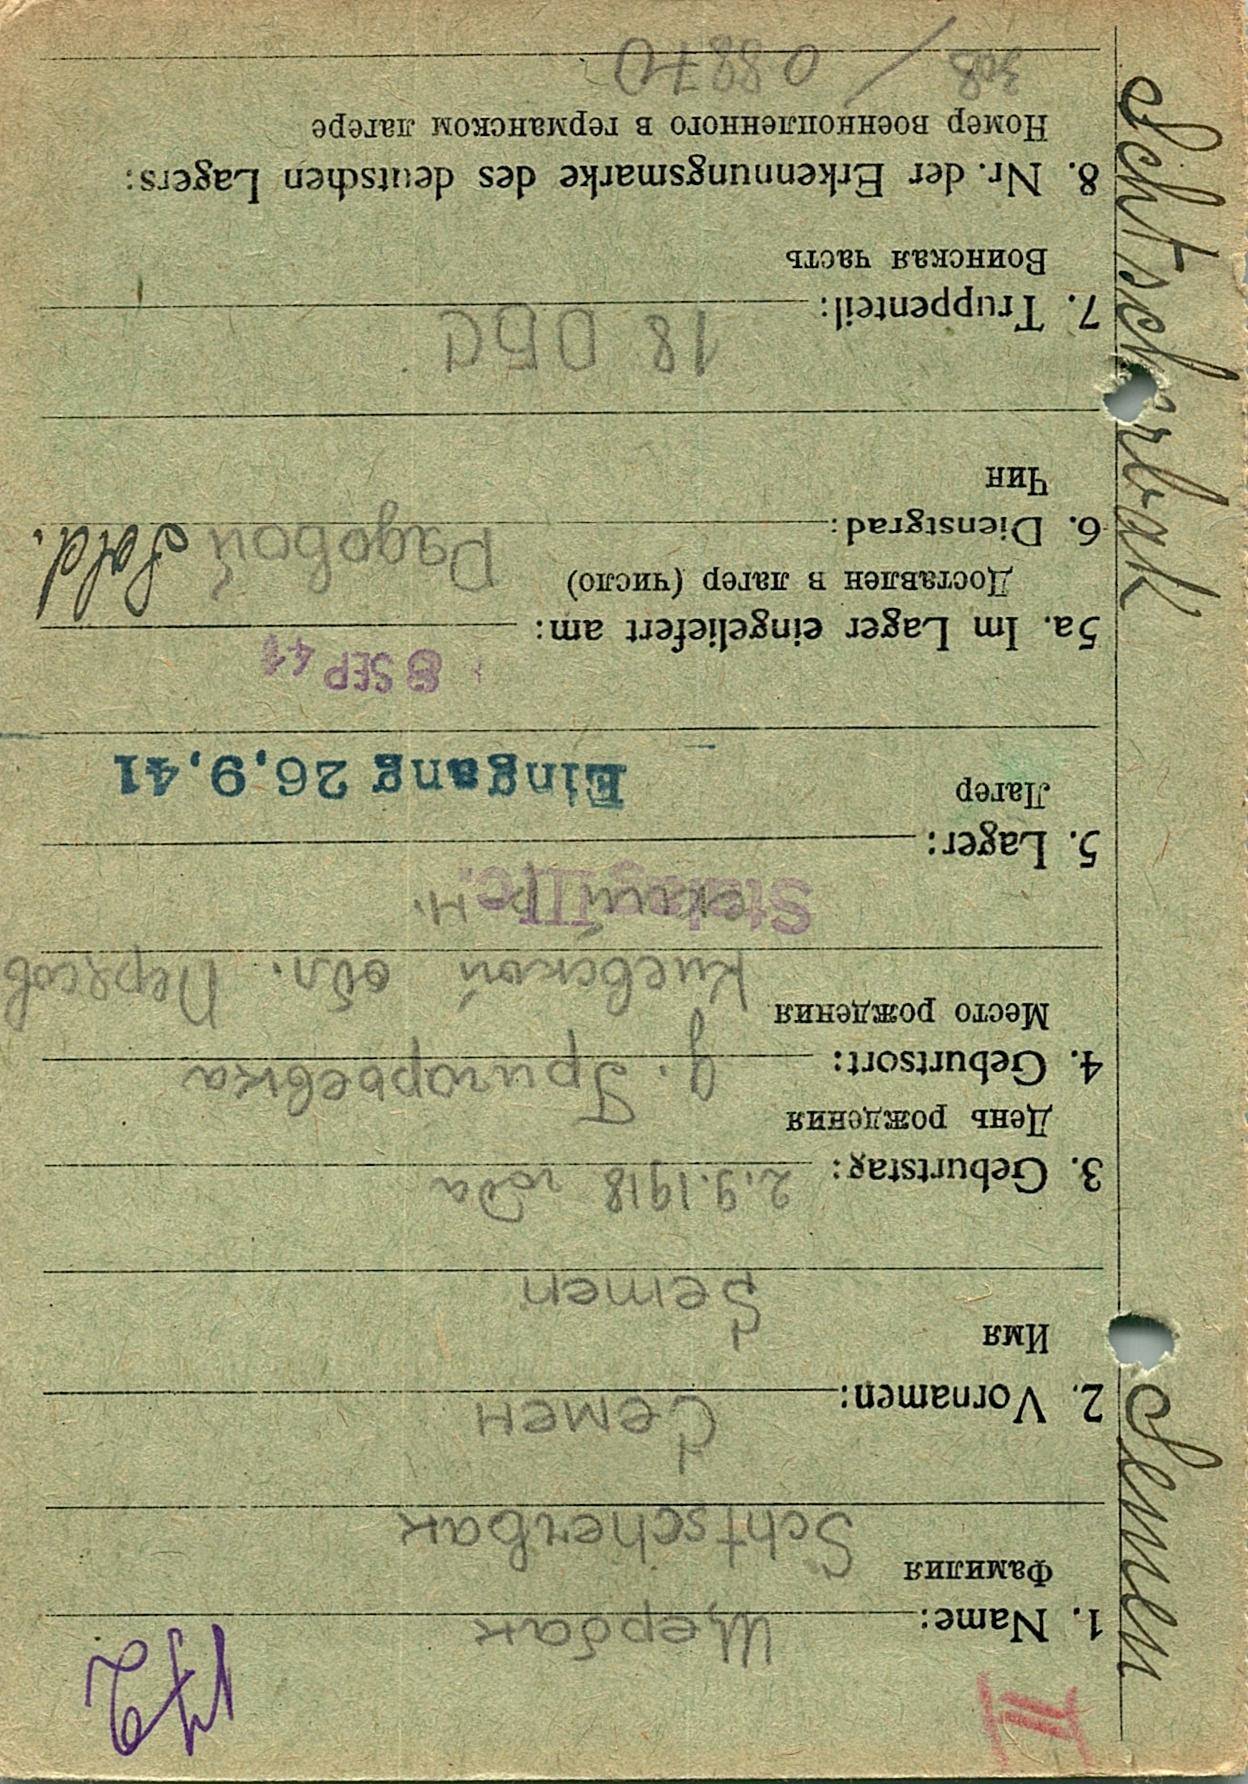 III
172
1. Name: Щербак
Фамилия
Schtscherbak
2. Vornamen: Семен
Имя
Semen
3. Geburtstag: 2.9.1918 года
День рождения
4. Geburtsort: д. Григорьевка
Место рождения
Киевской обл. Переясов
ский рн.
Stalag IIIc.
5. Lager:
Лагер
Eingang 26,9,41
8 SEP 41
5a. Im Lager eingeliefert am:
Доставлен в лагер (число)
6. Dienstgrad: Рядовой Sold.
Чин
7. Truppenteil: 18 ОБС
Воинская часть
8. Nr. der Erkennungsmarke des deutschen Lagers:
Номер военнопленного в германском лагере
308 / 08870
Schtscherbak Semen